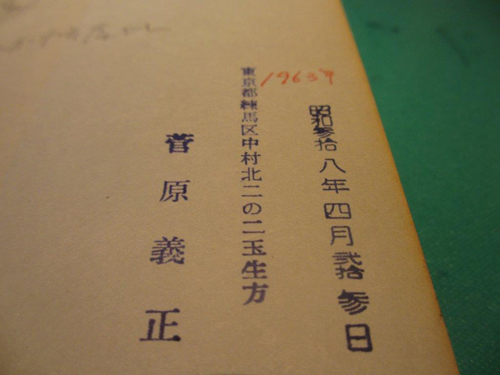 昭和参拾八年四月弐拾参日
1963年
東京都練馬区中村北二の二玉生方
菅原義正